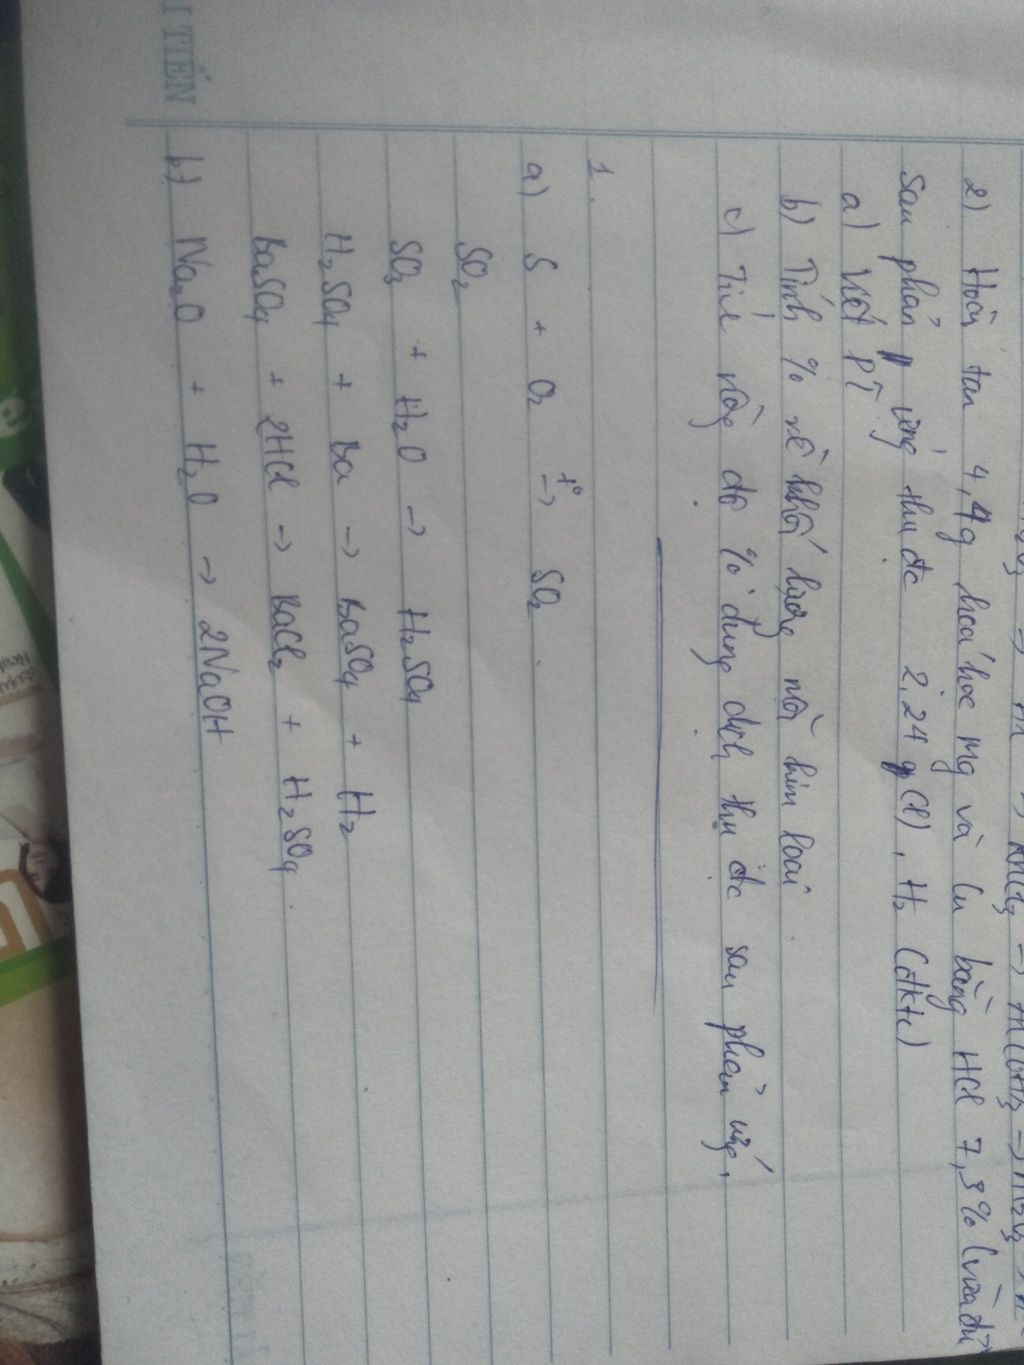 Al₂O₃ → Al → AlCl₃ → Al(OH)₃ → Al₂O₃ →
2) Hoàn tan 4,4g hoá học mg và Cu bằng HCl 7,3% (vừa đủ
sau phản ứng thu đc 2,24 (l), H₂ (đktc)
a) Viết PT
b) Tính % về khối lượng mỗi kim loại
c) Tính nồng độ % dung dịch thu đc sau phản ứng.
1.
a) S + O₂ →(t°) SO₂
SO₂
SO₃ + H₂O → H₂SO₄
H₂SO₄ + Ba → BaSO₄ + H₂
BaSO₄ + 2HCl → BaCl₂ + H₂SO₄
b) Na₂O + H₂O → 2NaOH
I TIẾN